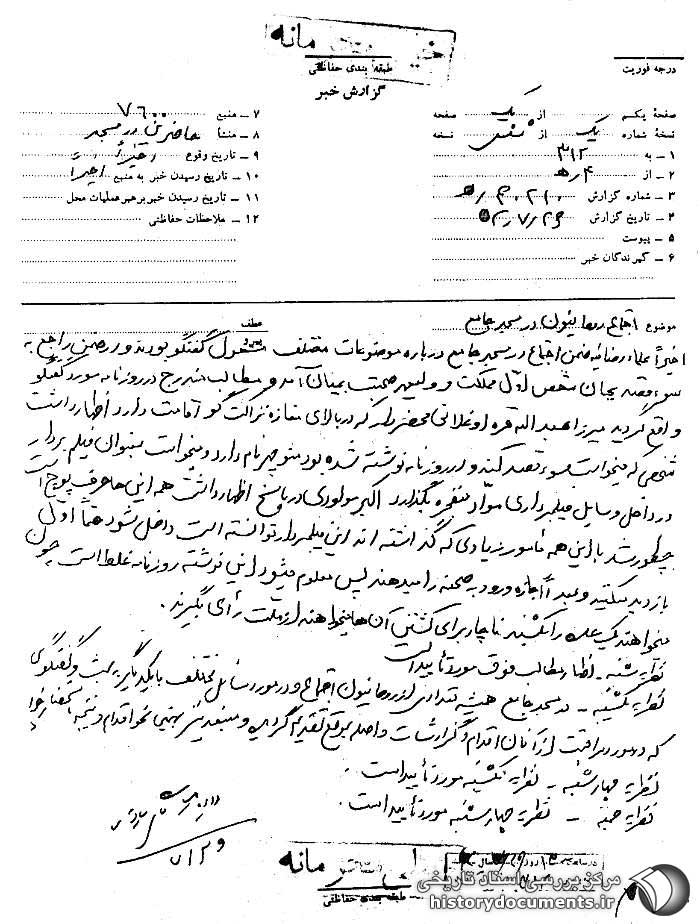 خیلی محرمانه
طبقه بندی حفاظتی
گزارش خبر
درجه فوریت
صفحه یکم از یک صفحه
نسخه شماره یک از نسخه
۱ – به ۳۱۲
۲ – از ۴ ھ
۳ – شماره گزارش
۴ – تاریخ گزارش
۵ – پیوست
۶ – گیرندگان خبر
۷ – منبع ۷۶۰۰
۸ – منشأ حاضرین در مسجد
۹ – تاریخ وقوع اخیراً
۱۰ – تاریخ رسیدن خبر به منبع اخیراً
۱۱ – تاریخ رسیدن خبر برهبر عملیات محل
۱۲ – ملاحظات حفاظتی
موضوع اجتماع روحانیون در مسجد جامع
عطف
اخیراً علماء رضائیه ضمن اجتماع در مسجد جامع درباره موضوعات مختلف مشغول گفتگو بودند و در ضمن راجع به
سوء قصد بجان شخص اول مملکت و ولیعهد صحبت بمیان آمد و مطالب مندرج در روزنامه مورد گفتگو
واقع گردید میرزا عبداله قره اوغلانی محضردار که در بالای مغازه اقامت دارد اظهار داشت
شخصی که میخواست سوء قصد کند و در روزنامه نوشته شده بود منوچهر نام دارد و میخواست بعنوان فیلم بردار
در داخل وسایل فیلمبرداری مواد منفجره بگذارد اکبر مولودی در پاسخ اظهار داشت همه این ها حرف پوچ است
چطور شد با این همه مامور زیادی که گذاشته اند این فیلمبردار توانسته است داخل شود حتماً اول
بازدید میکنند و بعداً اجازه ورود به صحنه را میدهند پس معلوم میشود این نوشته روزنامه غلط است چون
میخواهند یک عده را بکشند ناچار برای کشتن آن ها میخواهند از ملت رأی بگیرند .
نظریه شنبه – اظهار مطالب فوق مورد تأیید است
نظریه یکشنبه – در مسجد جامع همیشه تعدادی از روحانیون اجتماع و در مورد مسائل مختلف با یکدیگر به بحث و گفتگوی
که در مورد مراقبت از آنان اقدام و گزارشات واصله بموقع تقدیم گردیده و
نظریه چهارشنبه – نظریه یکشنبه مورد تأیید است .
نظریه جمعه – نظریه چهارشنبه مورد تأیید است .
طبقه بندی حفاظتی
مرکز بررسی اسناد تاریخی
historydocuments.ir